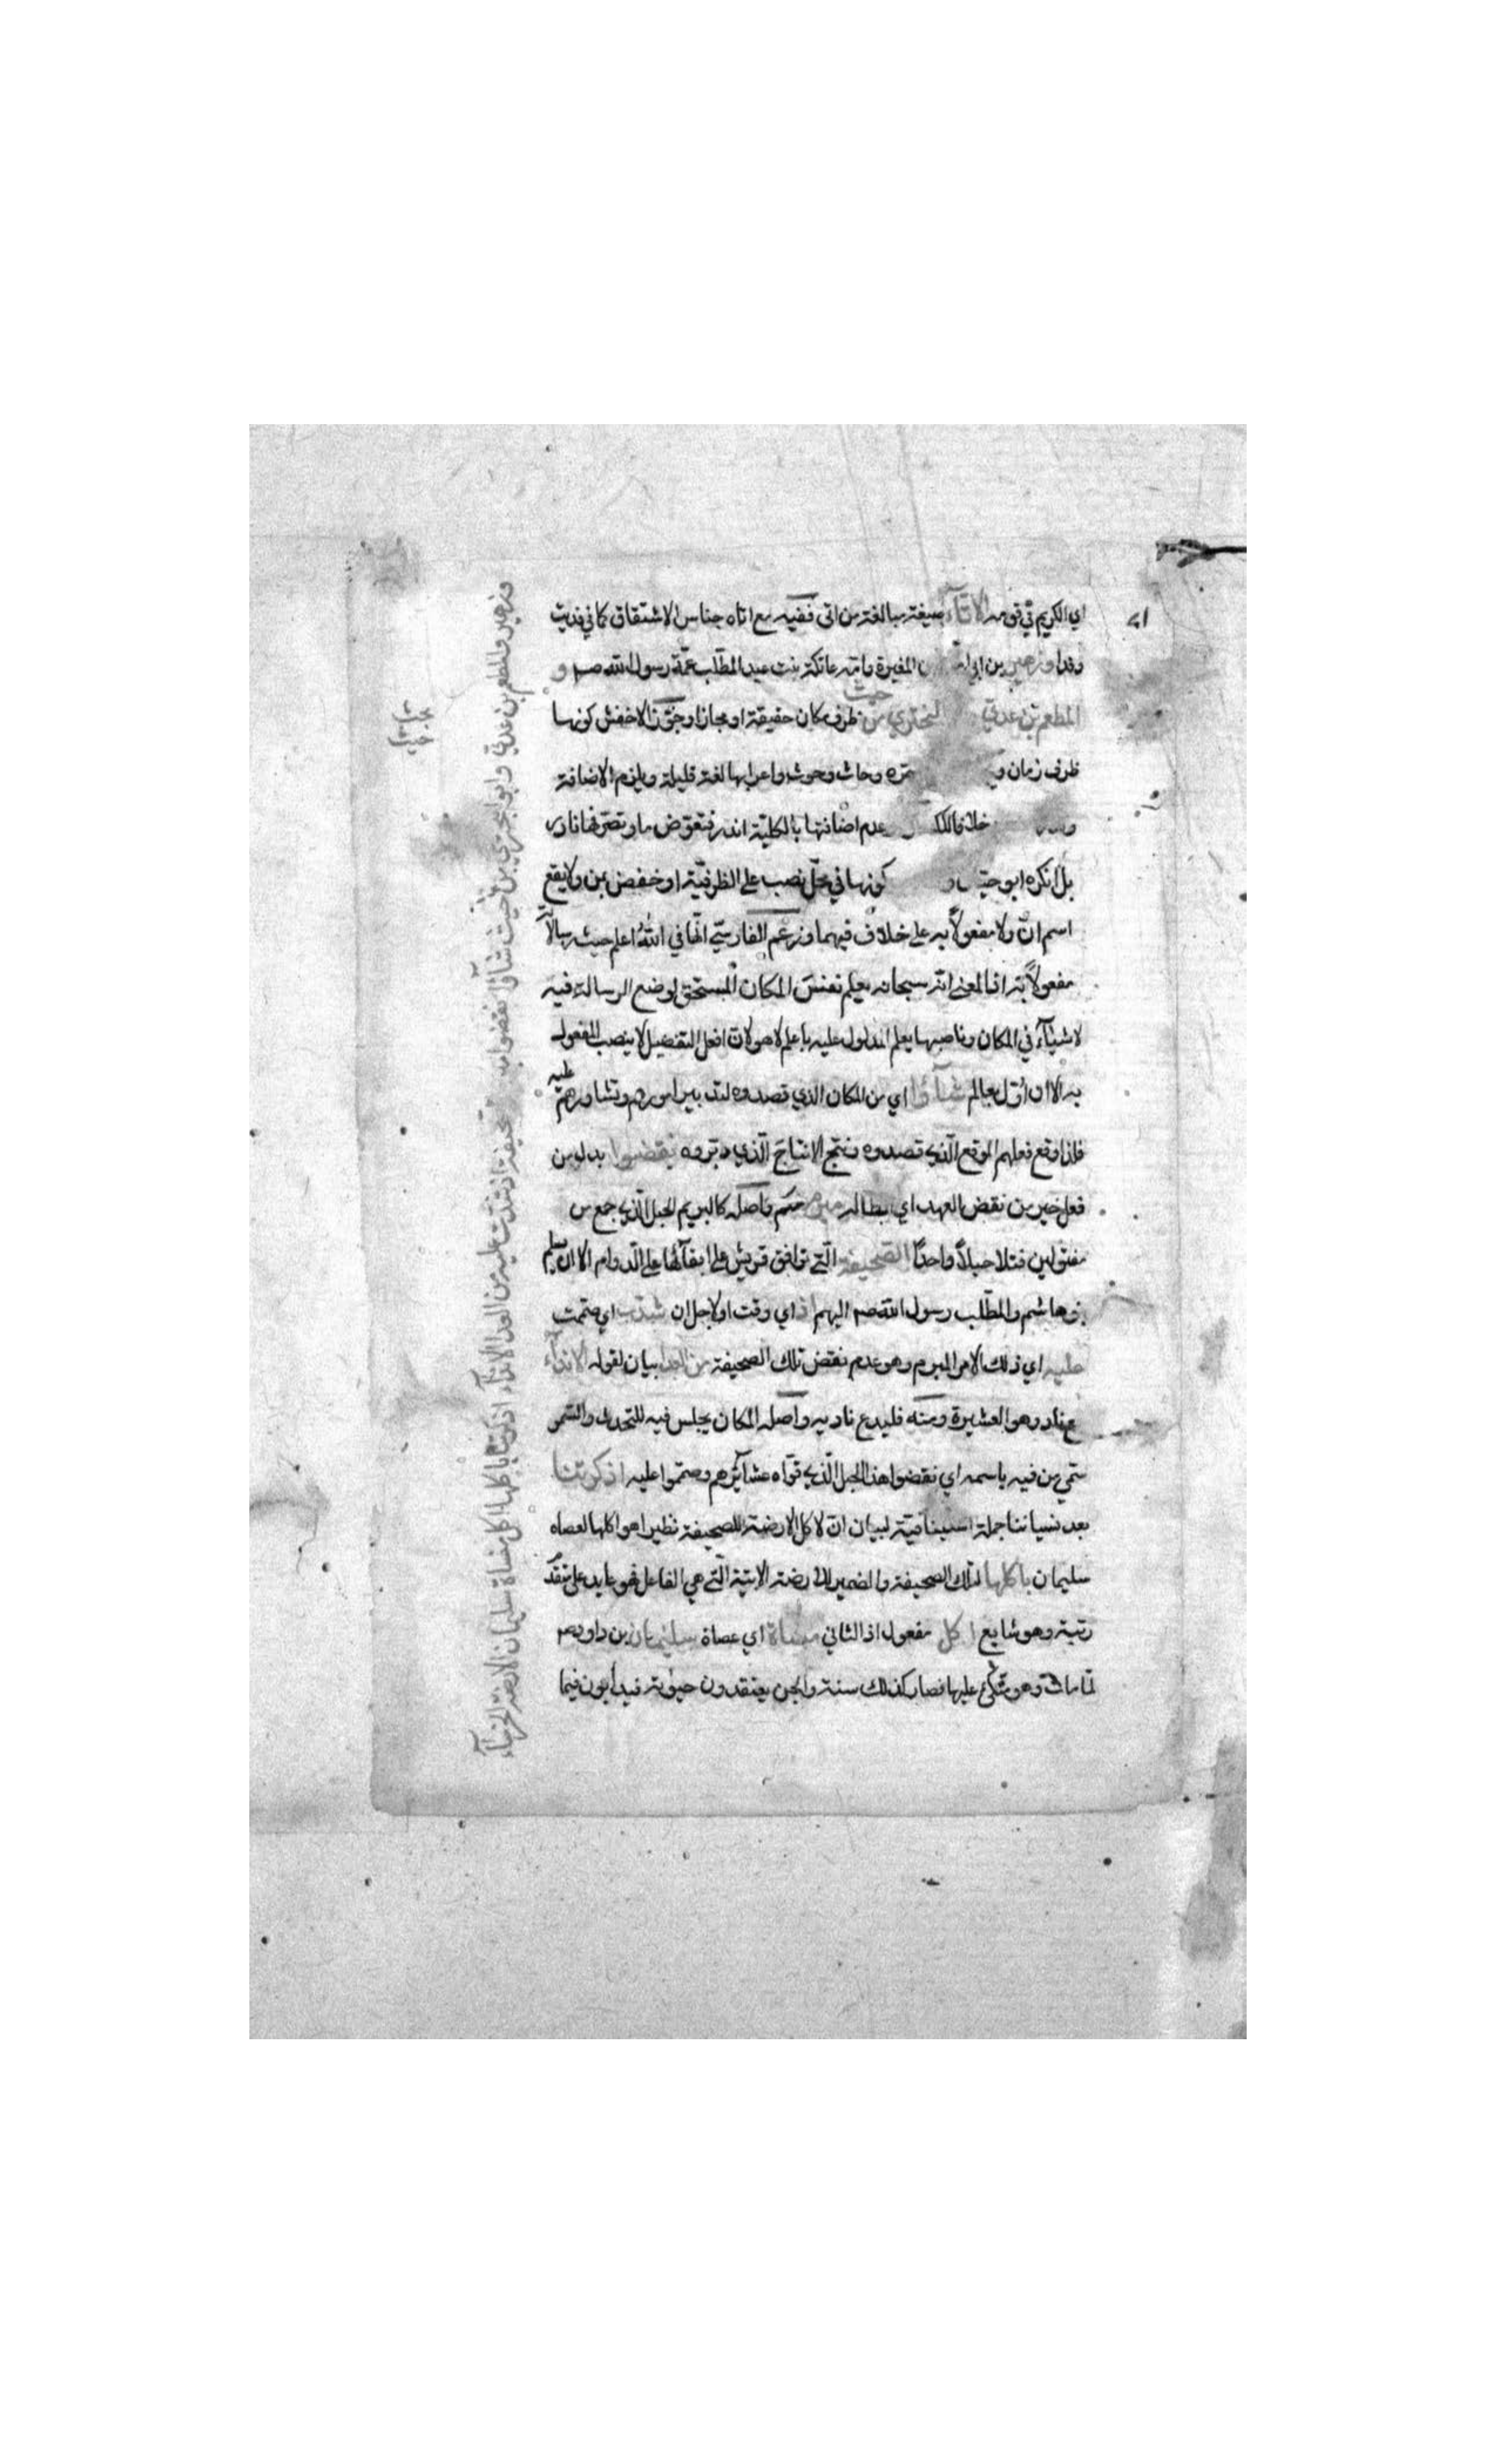 اي الكريم في قومه الاتآء صيغة مبالغة من اتى ففيه مع اتاه جناس الاشتقاق كما في فديت
وفدا وزهير بن ابي المغيرة وامه عاتكة بنت عبد المطلب عمة رسول الله صم و
المطعم بن عدي البختري من حيث ظرف مكان حقيقة او مجازا وجوّز الاخفش كونها
ظرف زمان وحاث وحوث واعرابها لغة قليلة ويلزم الاضافة
خلافا للك عدم اضافتها بالكلية اندر فتعوّض ما وتصرّفها نادر
بل انكره ابو كونها في محل نصب على الظرفية او خفض بمن ولا يقع
اسم انّ ولا مفعولاً به على خلاف فيهما وزعم الفارسي انّها في الله اعلم حيث رسالاته
مفعولاً به اذ المعنى انّه سبحانه يعلم نفس المكان المستحق لوضع الرسالة فيه
لا شيئاً في المكان وناصبها يعلم المدلول عليه باعلم لا هو لان افعل التفضيل لا ينصب المفعول
به الا ان اوّل بعالم شآؤا اي من المكان الذي قصدوه لتدبير امورهم وتشاورهم عليه
فاذا وقع فعلهم الموقع الّذي قصدوه فنتج الانتاج الّذي دبّروه نقضوا بدل من
فعل خير من نقض العهد اي ابطاله مبرم محكم واصله كالبريم الحبل الّذي جمع من
مفتولين فتلا حبلاً واحداً الصحيفة الّتي توافق قريش على ابقآئها على الدوام الا ان يسلم
بنو هاشم والمطّلب رسول الله صم اليهم اذ اي وقت او لاجل ان شدّت اي صمّمت
عليه اي ذلك الامر المبرم وهو عدم نقض تلك الصحيفة من العدا بيان لقوله الاندآء
جمع ناد وهو العشيرة ومنه فليدع ناديه واصله المكان يجلس فيه للتحدث والسّمر
سمّي من فيه باسمه اي نقضوا هذا الحبل الّذي قوّاه عشآئرهم وصمّموا عليه اذكرتنا
بعد نسياننا جملة استينافيّة لبيان انّ لاكل الارضة للصحيفة نظيرا هو اكلها لعصاه
سليمان باكلها لتلك الصحيفة والضمير للارضة الاتية الّتي هي الفاعل فهو عايد على متقدّم
رتبة وهو شايع اكل مفعول اذ الثاني منساة اي عصاة سليمان بن داود صم
لمّا مات وهو متّكئ عليها فصار كذلك سنة والجن يعتقدون حيوته فيدأبون فيما
وزهير والمطعم بن عدي وابو البختري من حيث شآؤا نقضوا مبرم الصحيفة اذ شدّت عليه من العدا الاندآء اذكرتنا باكلها اكل منساة سليمان الارضة الخرسآء